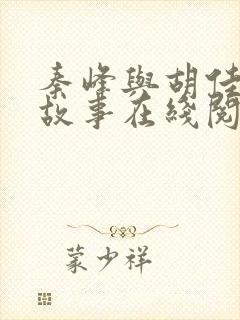 秦峰與胡佳
故事在綫閱
蒙少祥